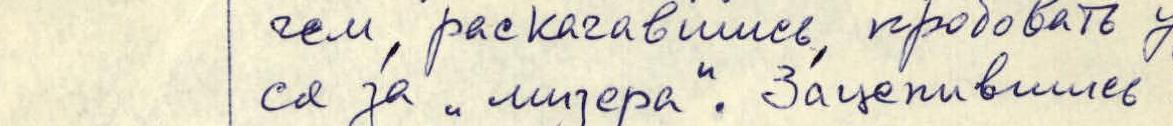 чем, раскачавшись, пробовать у
ся за „мизера“. Зацепившись